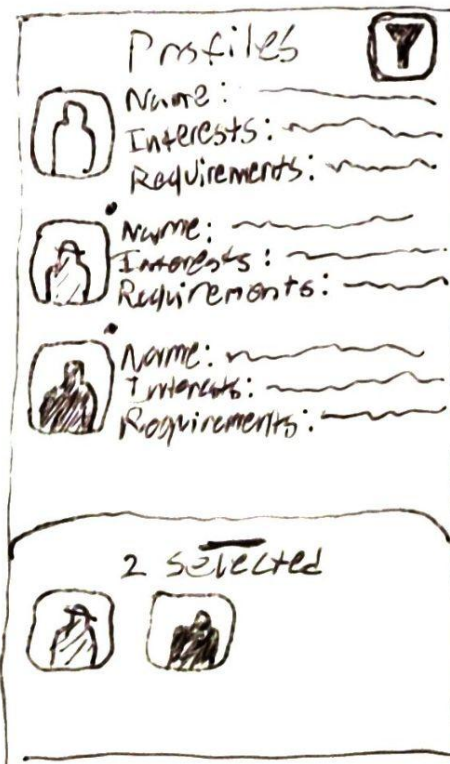 Profiles
Name:
Interests:
Requirements:
Name:
Interests:
Requirements:
Name:
Interests:
Requirements:
2 selected